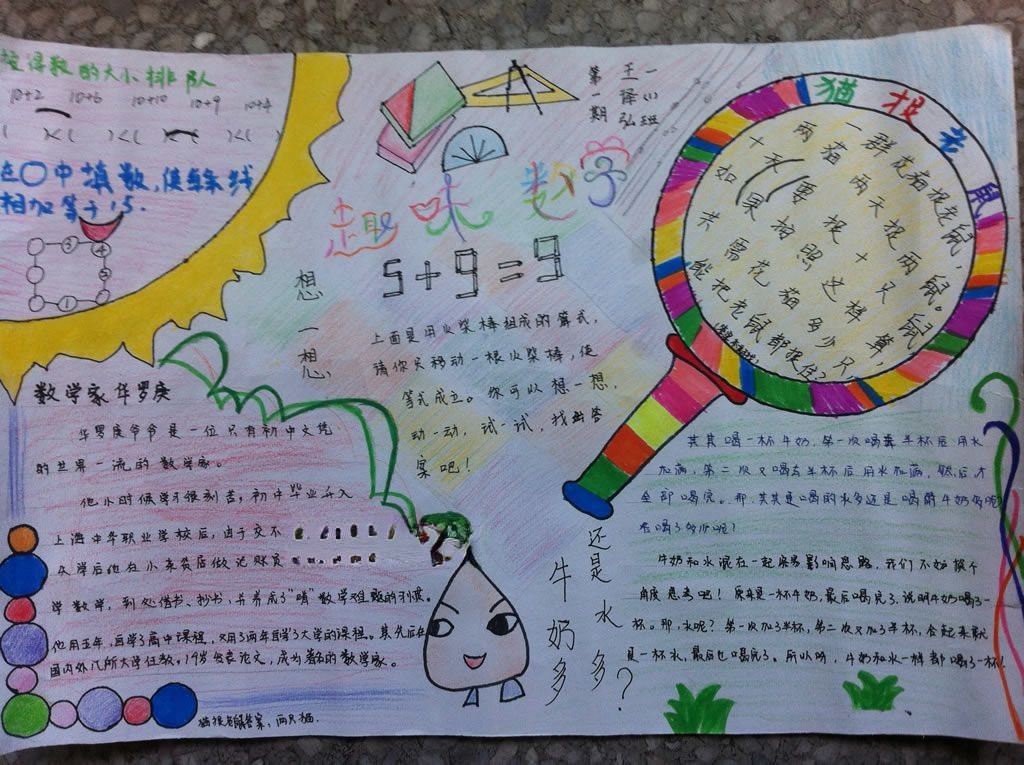 按得数的大小排队
10+2 10+6 10+10 10+9 10+4
( )<( )<( )<( )<( )
在○中填数,使每条线
相加等于15.
3 4
5
1
第一期
王译弘
一(1)班
趣味数学
5+9=9
想一想
上面是用火柴棒组成的算式,
请你只移动一根火柴棒,使
等式成立。你可以想一想,
动一动,试一试,找出答
案吧!
猫捉老鼠
一群花猫捉老鼠,
两猫两天捉两鼠。
十天要捉十只鼠,
如果按照这样算,
共需花猫多少只
能把老鼠都捉住?
数学家华罗庚
华罗庚爷爷是一位只有初中文凭
的世界一流的数学家。
他小时候学习很刻苦,初中毕业升入
上海中华职业学校后,由于交不
失学后他在小杂货店做记账员
学数学,到处借书、抄书,并养成了“啃”数学难题的习惯。
他用五年,自学了高中课程,又用了两年自学了大学的课程。其先后在
国内外八所大学任教。19岁发表论文,成为著名的数学家。
猫捉老鼠答案:两只猫.
牛奶多
还是水多?
其其喝一杯牛奶,第一次喝去半杯后用水
加满,第二次又喝去半杯后用水加满,然后才
全部喝完。那,其其是喝的水多还是喝的牛奶多呢
各喝了多少呢?
牛奶和水混在一起容易影响思路,我们不妨换个
角度思考吧!原来是一杯牛奶,最后喝完了,说明牛奶喝了一
杯。那,水呢?第一次加了半杯,第二次又加了半杯,合起来就
是一杯水,最后也喝完了。所以呀,牛奶和水一样都喝了一杯!